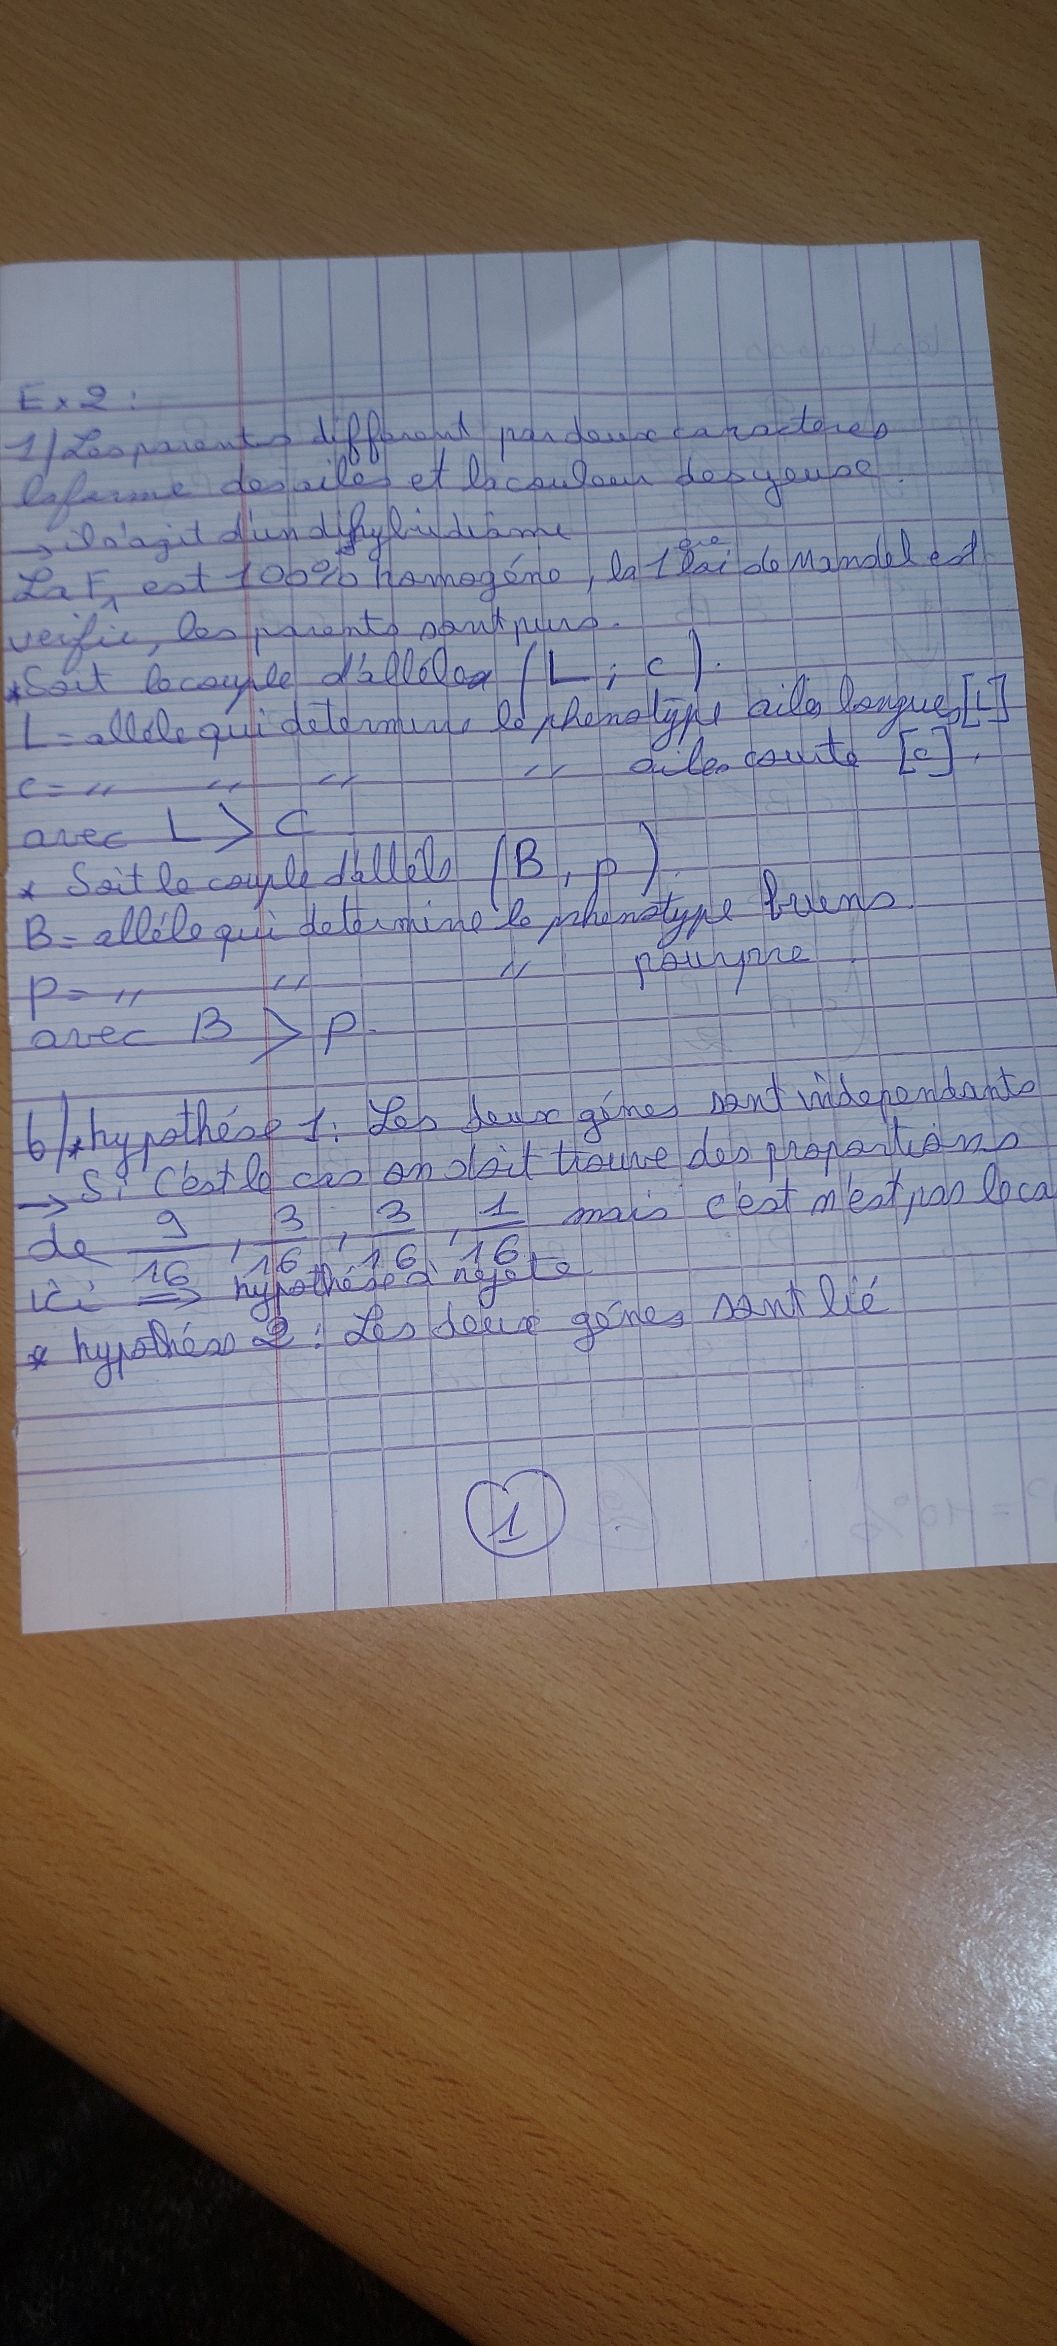 Ex 2 :
1/ Les parents différent par deux caractères
la forme des ailes et la couleur des yeuse.
→ il s'agit d'un dihybridisme
La F1 est 100% homogéne, la 1ère loi de Mandel est
verifié, les parents sont purs.
* Soit le couple d'alléles (L ; c).
L = alléle qui détermine le phenotype ailes longues [L]
c = " " " " ailes courte [c].
avec L > c
* Soit le couple d'alléls (B, p).
B = alléle qui détermine le phenotype bruns.
p = " " " pourpre
avec B > p.
b/ * hypothése 1 : Les deux génes sont indépendants
→ Si c'est le cas on doit trouve des proportions
de 9/16, 3/16, 3/16, 1/16 mais c'est n'est pas le ca
ici => hypothése à rejete
* hypothése 2 : Les deux génes sont lié
1